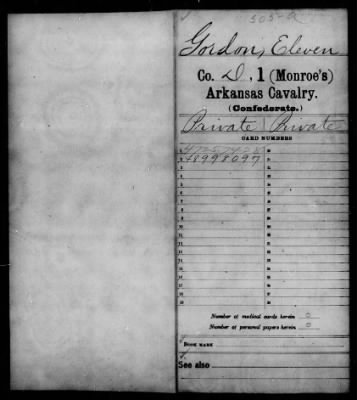 Gordon, Eleven
Co. D, 1 (Monroe's)
Arkansas Cavalry.
(Confederate.)
Private | Private
CARD NUMBERS
48998097
Number of medical cards herein 0
Number of personal papers herein 0
BOOK MARK
See also